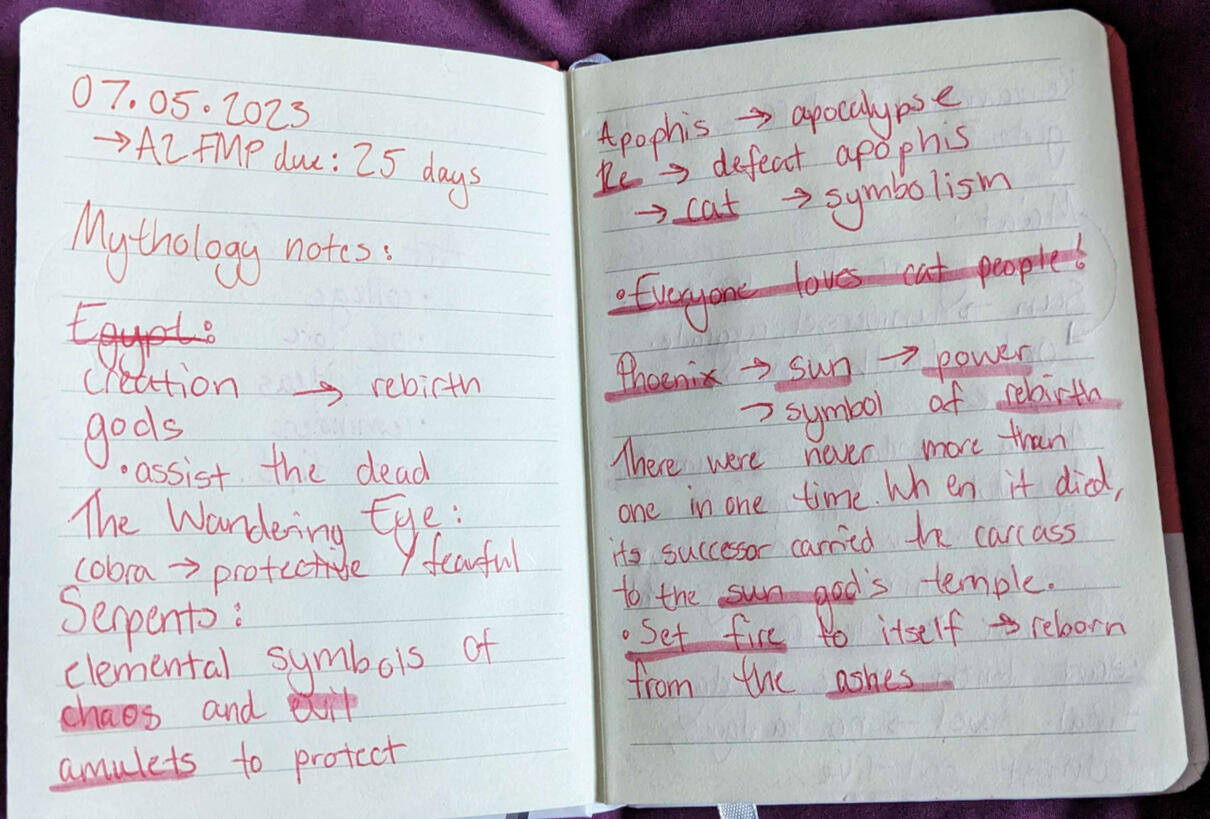 07.05.2023
→ A2 FMP due: 25 days
Mythology notes:
Egypt:
creation → rebirth
gods
• assist the dead
The Wandering Eye:
cobra → protective / fearful
Serpents:
elemental symbols of
chaos and evil
amulets to protect
Apophis → apocalypse
Re → defeat apophis
→ cat → symbolism
• Everyone loves cat people!
Phoenix → sun → power
→ symbol of rebirth
There were never more than
one in one time. When it died,
its successor carried the carcass
to the sun god's temple.
• Set fire to itself → reborn
from the ashes